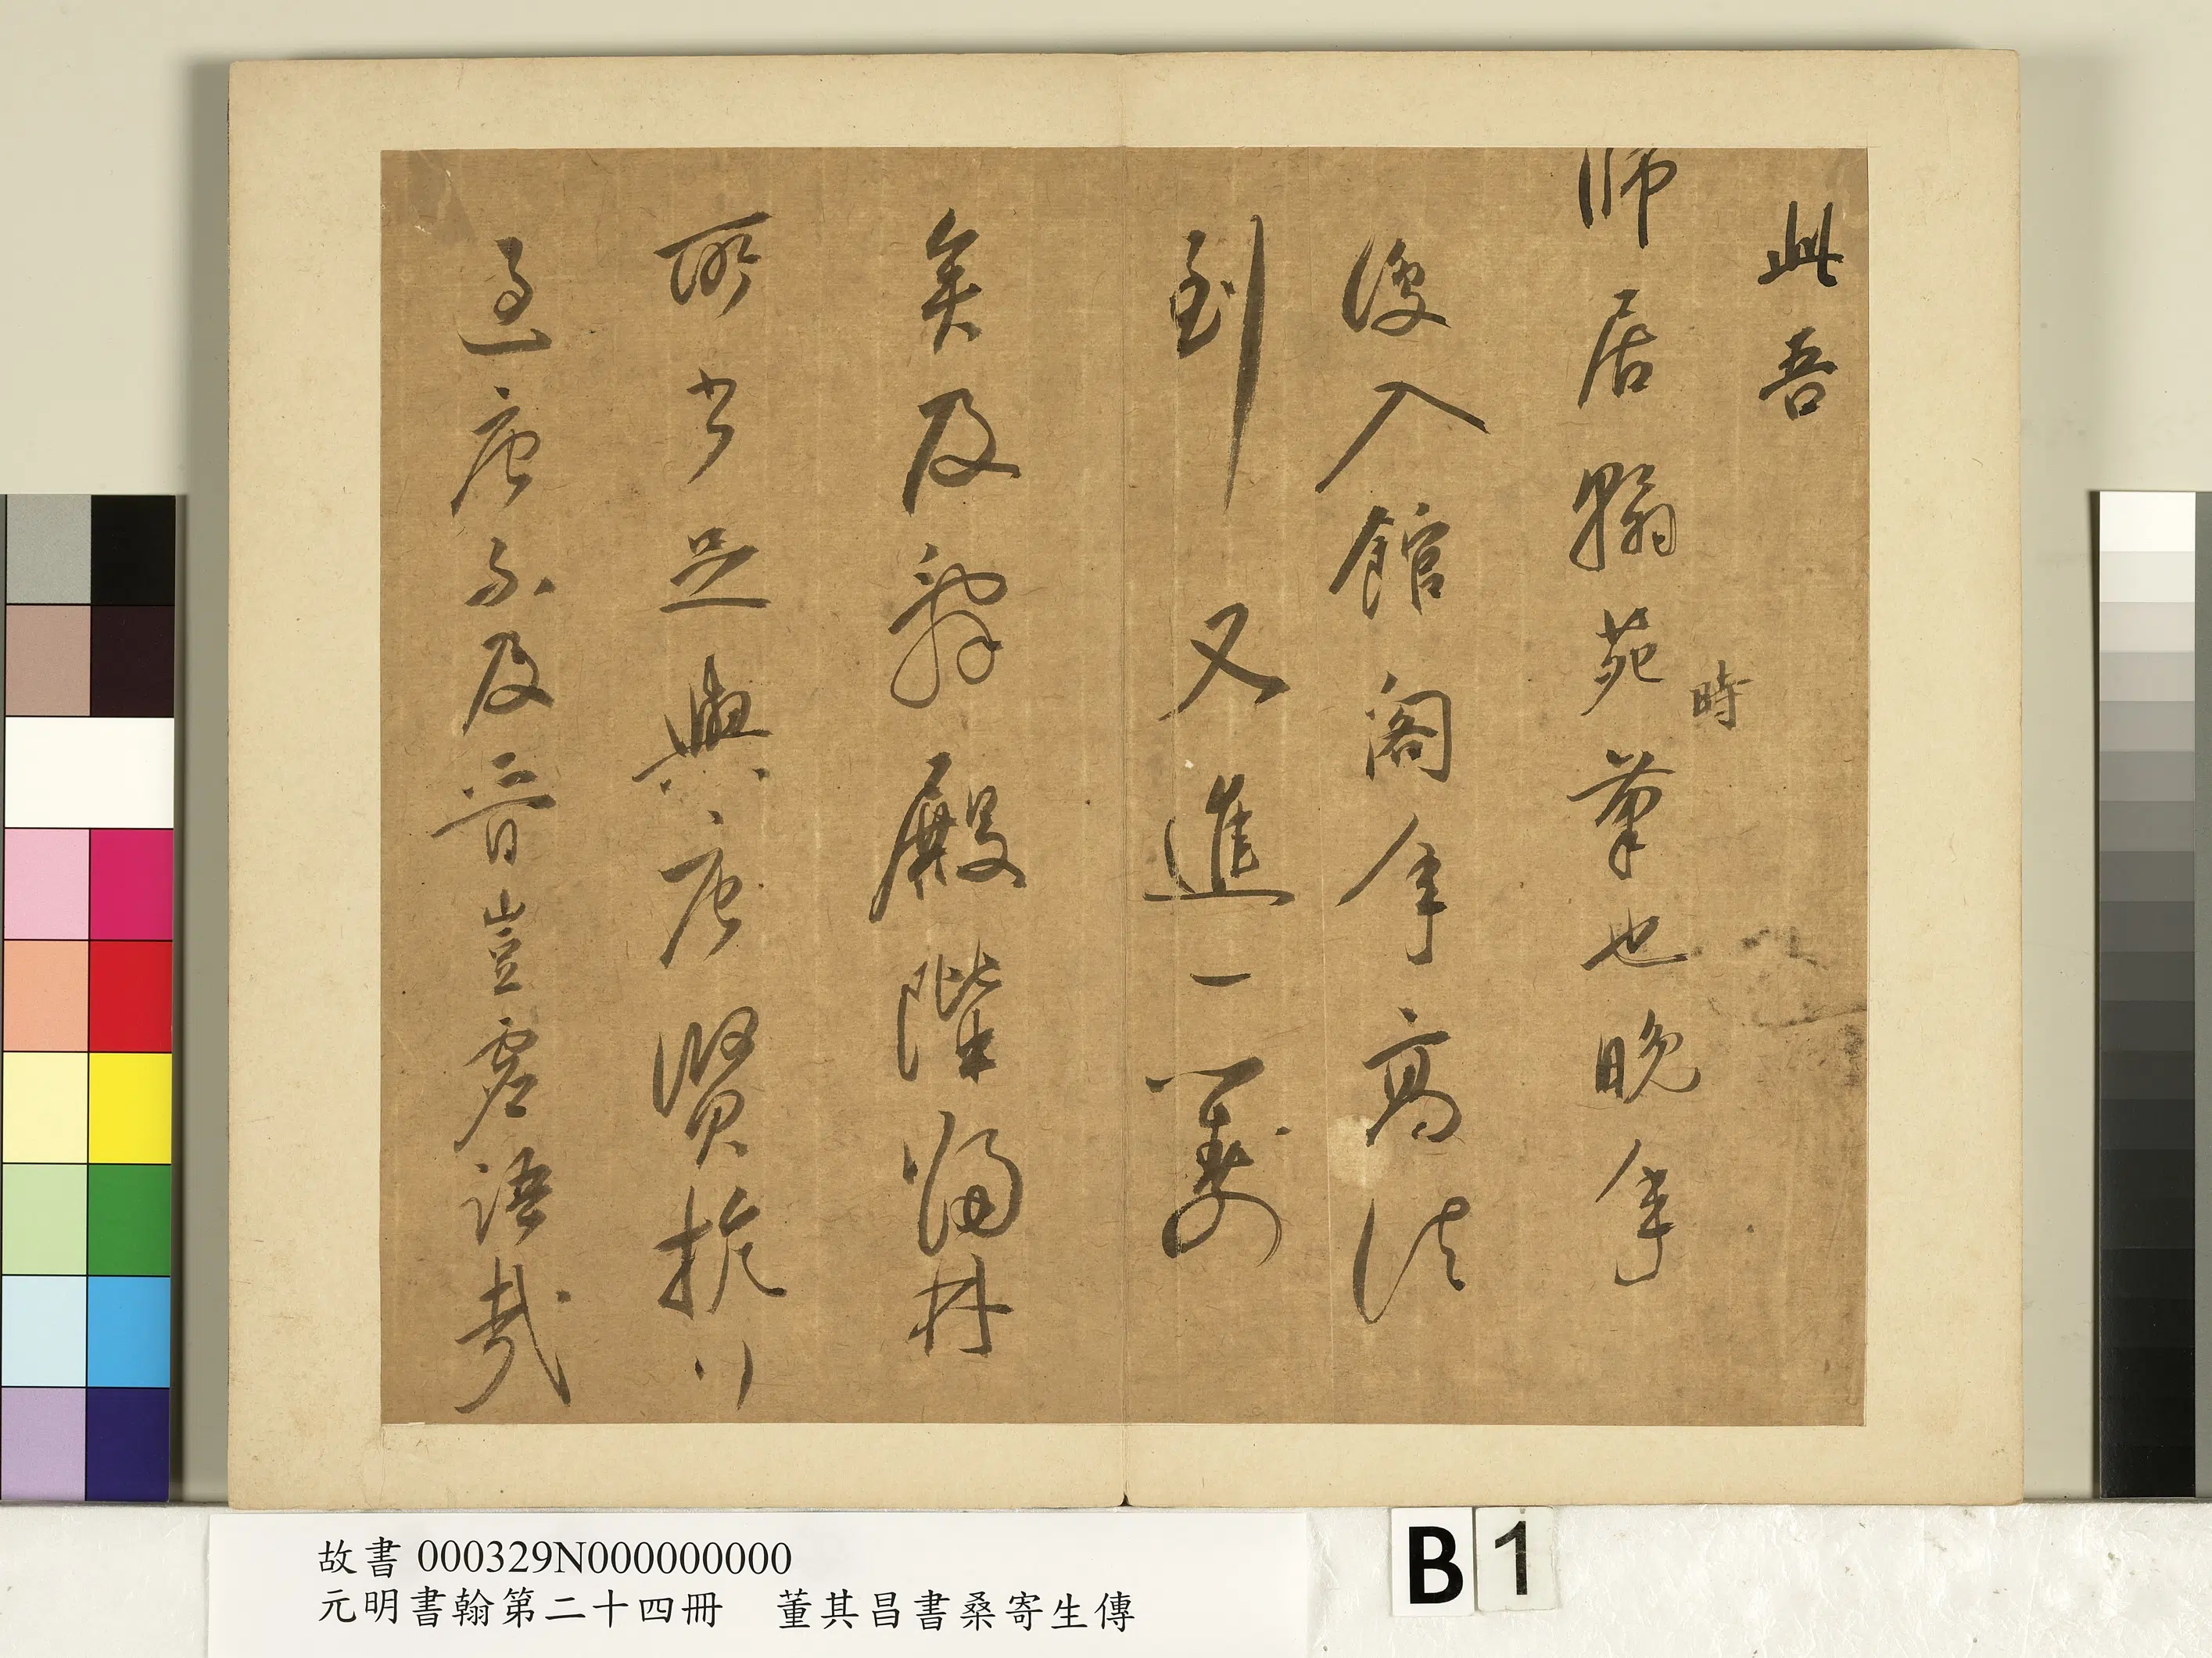 此吾
師居翰苑時筆也晚年
復入館閣年高法
到又進一籌
矣及辭殿階歸林
所書足與唐賢抗行
過唐不及晉豈虛語哉
故書 000329N000000000
元明書翰第二十四冊　董其昌書桑寄生傳
B 1